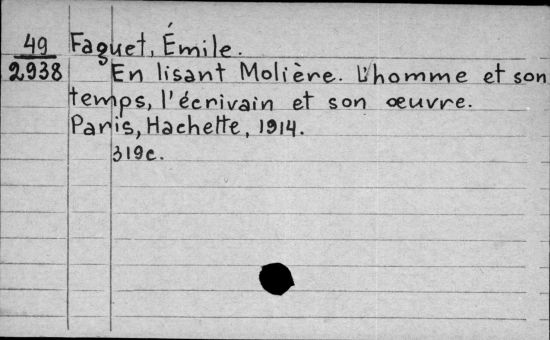 49 Faguet, Émile.
2938 En lisant Molière. L'homme et son
temps, l'écrivain et son œuvre.
Paris, Hachette, 1914.
319c.